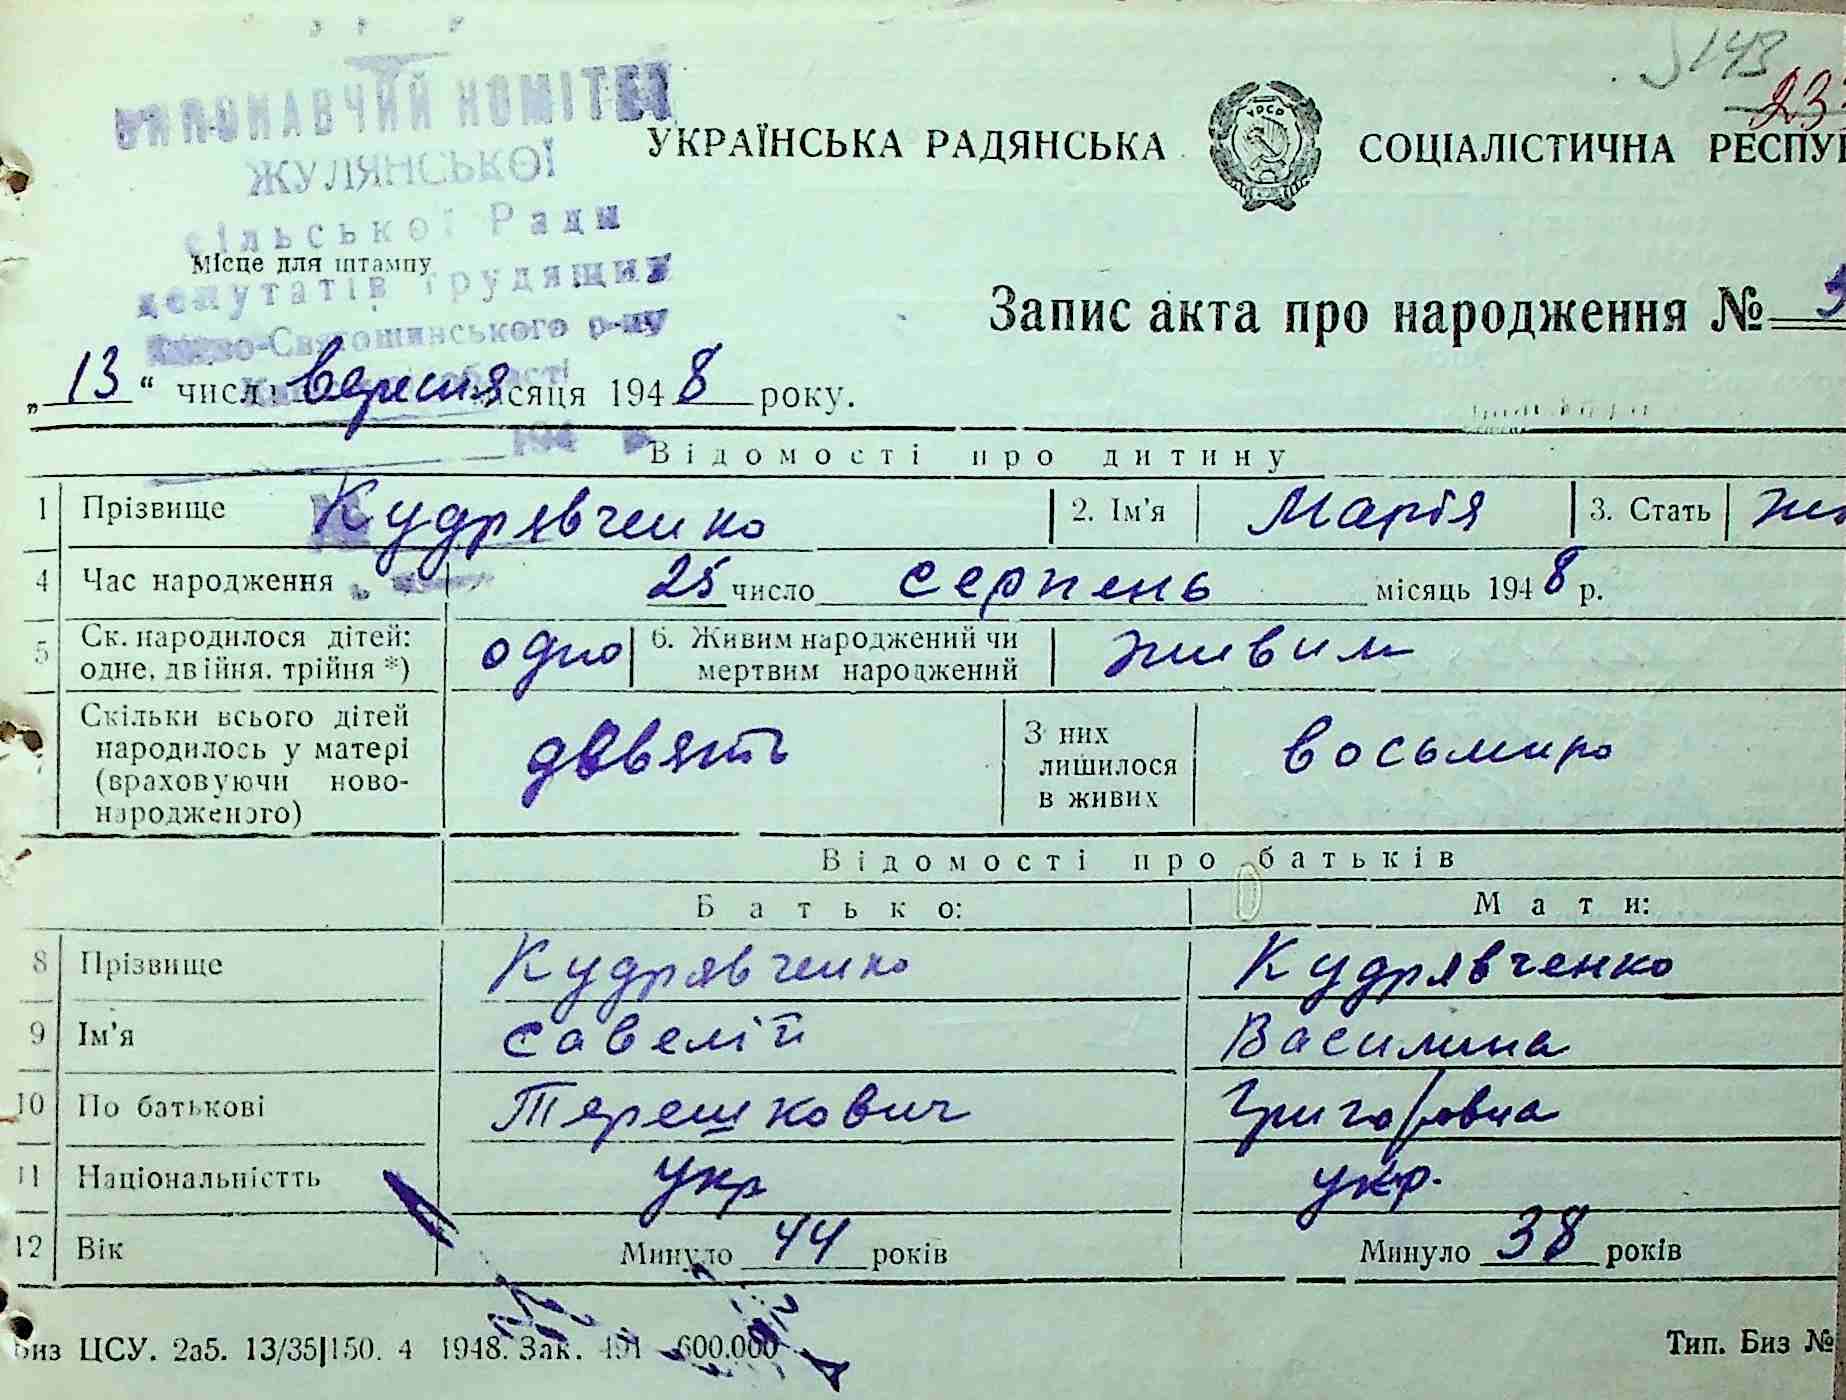 143
23
ВИКОНАВЧИЙ КОМІТЕТ
ЖУЛЯНСЬКОЇ
сільської Ради
депутатів трудящих
Києво-Святошинського р-ну
області
194
УКРАЇНСЬКА РАДЯНСЬКА СОЦІАЛІСТИЧНА РЕСПУ
УРСР
Місце для штампу
Запис акта про народження №
„13“ число вересня місяця 1948 року.
Відомості про дитину
1 Прізвище Кудрявченко 2. Ім'я Марія 3. Стать
4 Час народження 25 число серпень місяць 1948 р.
5 Ск. народилося дітей: одно 6. Живим народжений чи живим
одне, двійня, трійня *) мертвим народжений
Скільки всього дітей
народилось у матері девять З них восьмиро
(враховуючи ново- лишилося
народженого) в живих
Відомості про батьків
Батько: Мати:
8 Прізвище Кудрявченко Кудрявченко
9 Ім'я Савелій Василина
10 По батькові Терешкович Григоровна
11 Національністть укр укр.
12 Вік Минуло 44 років Минуло 38 років
Биз ЦСУ. 2а5. 13/35|150. 4 1948. Зак. 491 600.000 Тип. Биз №